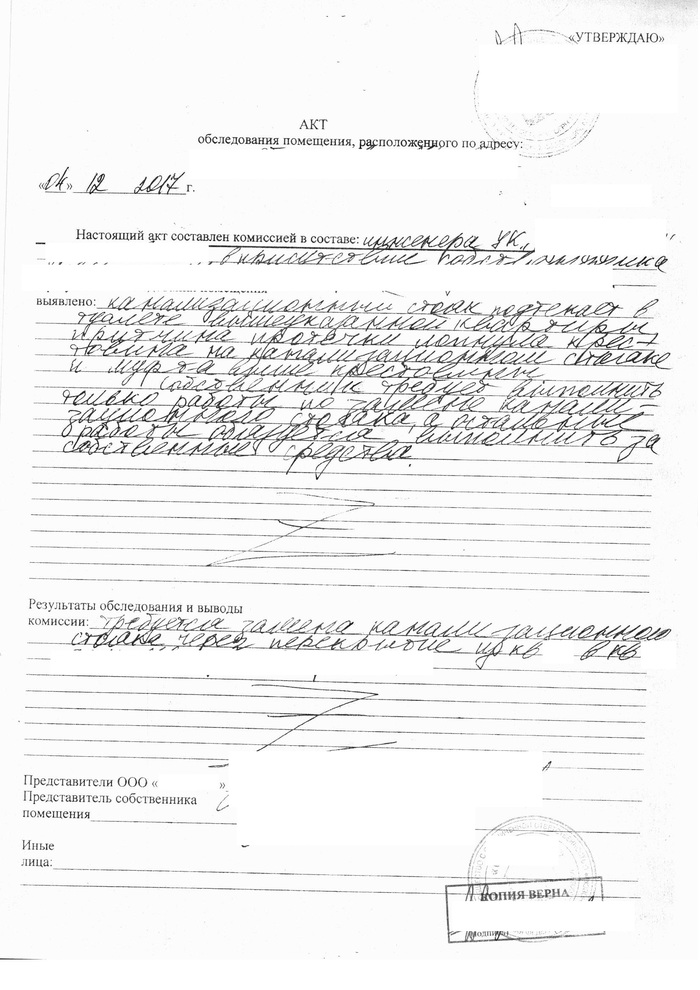 «УТВЕРЖДАЮ»
АКТ
обследования помещения, расположенного по адресу:
«04» 12 2017 г.
Настоящий акт составлен комиссией в составе: инженера УК,
в присутствие
выявлено: канализационный стояк подтекает в
туалете вышеуказанной квартиры
причина протечки лопнула крес-
товина на канализационном стояке
и муфта выше крестовины
Собственник требует выполнить
только работы по замене канали-
зационного стояка, а остальные
работы обязуется выполнить за
собственные средства.
Результаты обследования и выводы
комиссии: требуется замена канализационного
стояка через перекрытие из кв в кв
Представители ООО « »
Представитель собственника
помещения
Иные
лица:
КОПИЯ ВЕРНА